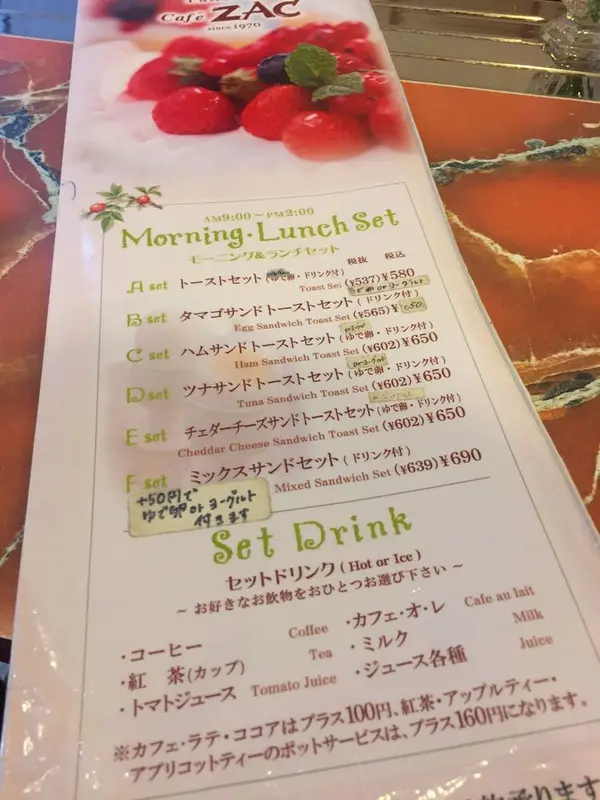 Café ZAC
since1970
AM9:00～PM2:00
Morning・Lunch Set
モーニング&ランチセット
税抜 税込
A set トーストセット(ゆで卵・ドリンク付)
Toast Set (¥537)¥580
B set タマゴサンドトーストセット(ドリンク付)
Egg Sandwich Toast Set (¥565)¥
C set ハムサンドトーストセット(ゆで卵・ドリンク付)
Ham Sandwich Toast Set (¥602)¥650
orヨーグルト
D set ツナサンドトーストセット(ゆで卵・ドリンク付)
Tuna Sandwich Toast Set (¥602)¥650
E set チェダーチーズサンドトーストセット(ゆで卵・ドリンク付)
Cheddar Cheese Sandwich Toast Set (¥602)¥650
F set ミックスサンドセット(ドリンク付)
Mixed Sandwich Set (¥639)¥690
+50円で
ゆで卵orヨーグルト
付きます
Set Drink
セットドリンク(Hot or Ice)
～お好きなお飲物をおひとつお選び下さい～
・コーヒー Coffee ・カフェ・オ・レ Cafe au lait
・紅 茶(カップ) Tea ・ミルク Milk
・トマトジュース Tomato Juice ・ジュース各種 Juice
※カフェ・ラテ・ココアはプラス100円、紅茶・アップルティー・
アプリコットティーのポットサービスは、プラス160円になります。